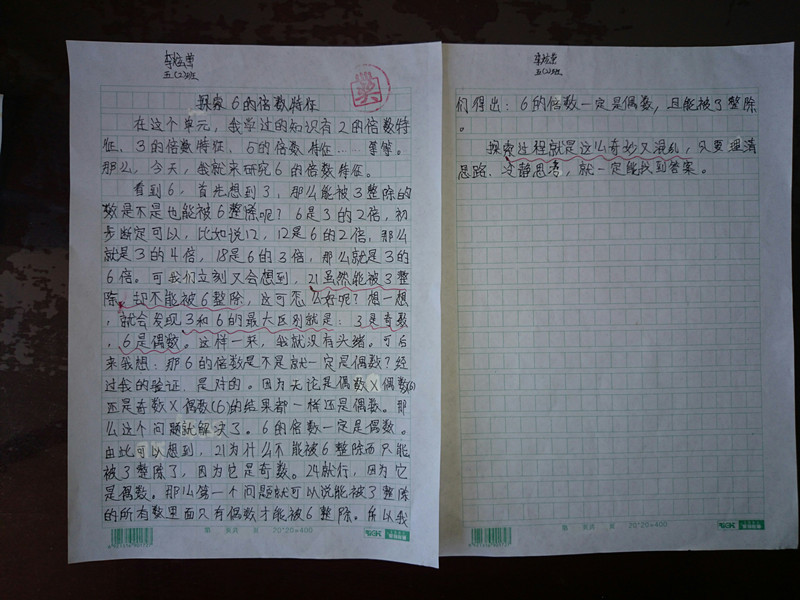 李
五(2)班
奖
探索6的倍数特征
在这个单元，我学过的知识有2的倍数特
征、3的倍数特征、5的倍数特征……等等。
那么，今天，我就来研究6的倍数特征。
看到6，首先想到3，那么能被3整除的
数是不是也能被6整除呢？6是3的2倍，初
步断定可以，比如说12，12是6的2倍，那么
就是3的4倍，18是6的3倍，那么就是3的
6倍。可我们立刻又会想到，21虽然能被3整
除，却不能被6整除，这可怎么好呢？想一想
，就会发现3和6的最大区别就是：3是奇数
，6是偶数。这样一来，我就没有头绪。可后
来我想：那6的倍数是不是就一定是偶数？经
过我的验证，是对的。因为无论是偶数×偶数(6)
还是奇数×偶数(6)的结果都一样还是偶数。那
么这个问题就解决了。6的倍数一定是偶数。
由此可以想到，21为什么不能被6整除而只能
被3整除了，因为它是奇数。24就行，因为它
是偶数。那么第一个问题就可以说能被3整除
的所有数里面只有偶数才能被6整除。所以我
第 页共 页 20*20=400
李
五(2)班
们得出：6的倍数一定是偶数，且能被3整除
。
探索过程就是这么奇妙又混乱，只要理清
思路、冷静思考，就一定能找到答案。
第 页共 页 20*20=400